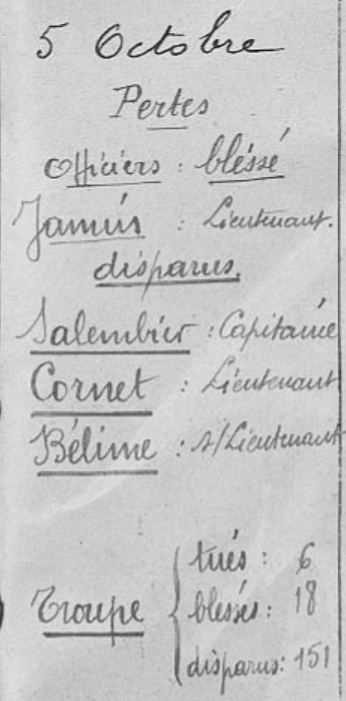 5 Octobre
Pertes
Officiers : bléssé
Jamin : Lieutenant.
disparus.
Salembier : Capitaine
Cornet : Lieutenant
Bélime : s/Lieutenant
Troupe { tués : 6
blessés : 18
disparus : 151